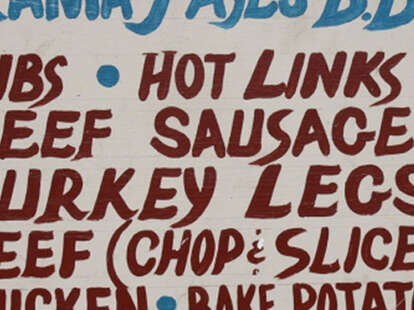 IBS • HOT LINKS
EEF SAUSAGE
URKEY LEGS
EEF (CHOP & SLICE
HICKEN • BAKE POTAT